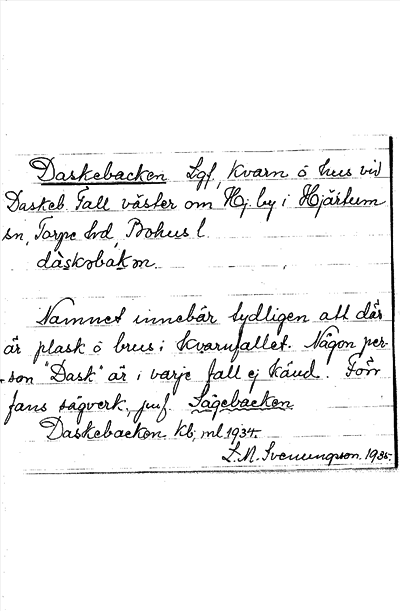 Daskebacken Lgf, Kvarn o hus vid
Daskeb. Fall väster om Hj. by i Hjärtum
sn, Torpe hd, Bohus l.
dàskəbakən
Namnet innebär tydligen att där
är plask o brus i kvarnfallet. Någon per-
son "Dask" är i varje fall ej känd. Förr
fans sågverk, jmf. Sågebacken
Daskebacken kb, ml 1934.
L.M. Svenungson. 1935.